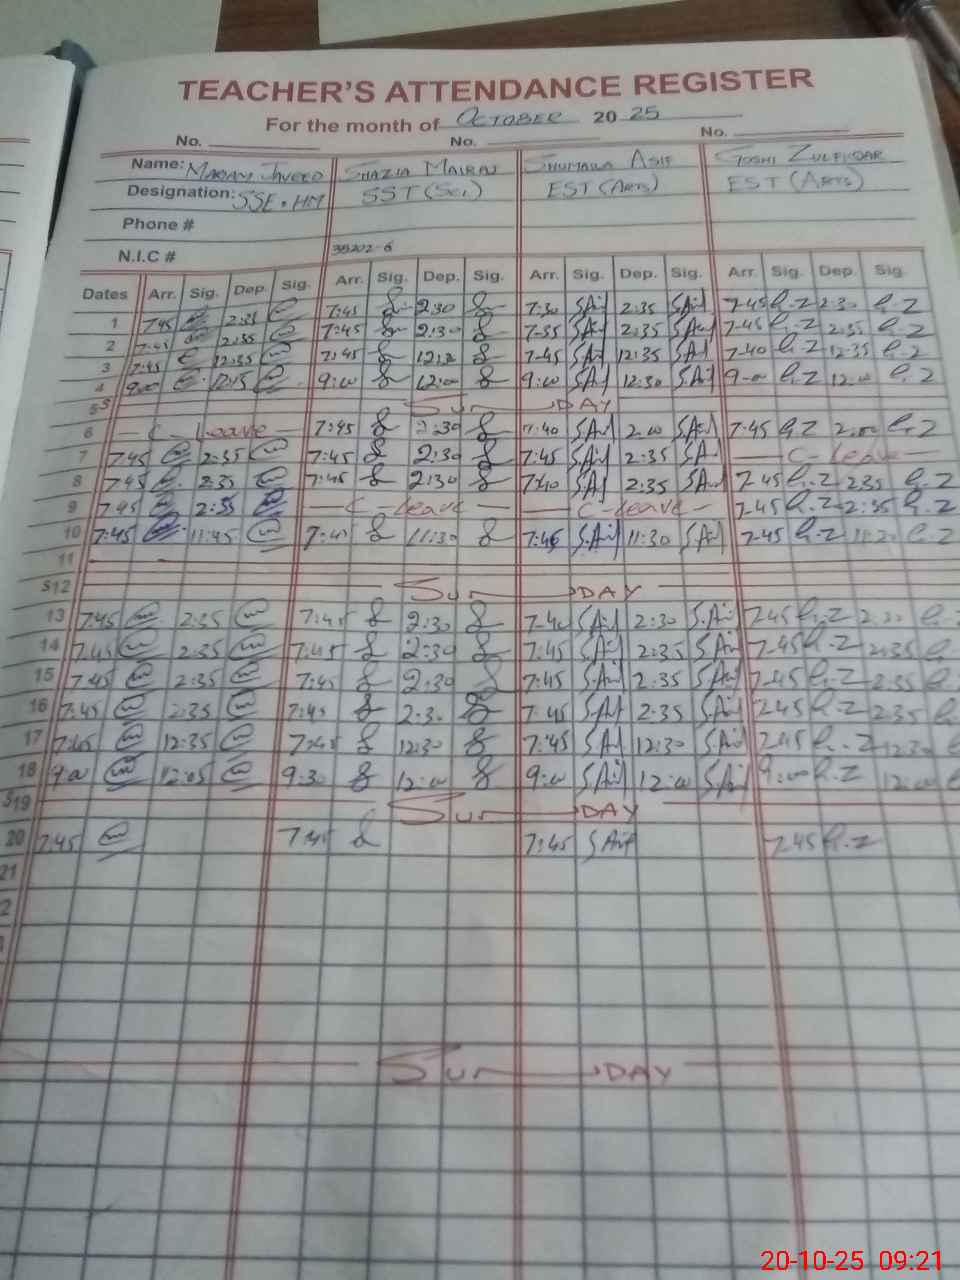 TEACHER'S ATTENDANCE REGISTER
For the month of OCTOBER 20 25
No. No. No.
Name: JAVEED SHAZIA MAIRAJ SHUMAILA ASIF GOSHI ZULFIQAR
Designation: SSE.HM SST (Sci.) EST (ARTS) EST (ARTS)
Phone #
N.I.C # 35202-6
Dates Arr. Sig. Dep. Sig. Arr. Sig. Dep. Sig. Arr. Sig. Dep. Sig. Arr. Sig. Dep. Sig.
1 7:45 2:35 7:45 2:30 7:30 2:35 7-45 2:30
2 7:45 2:35 7:45 2:30 7:35 2:35 7-45 2:35
3 7:45 12:35 7:45 7-45 12:35 7-40 12:35
4 9:00 12:15 9:00 12:00 9:00 12:30 9-00 12:00
5 S SUNDAY
6 C-Leave 7:45 2:30 7:40 2:00 7-45
7 7:45 2:35 7:45 2:30 7:45 2:35 C-Leave
8 7:45 2:35 7:45 2:30 7:40 2:35 7-45 2:35
9 7:45 2:35 C-Leave C-Leave 7-45 2:35
10 7:45 11:45 7:45 11:30 7:45 11:30 7-45
11
S12 SUNDAY
13 7:45 2:35 7:45 2:30 7-40 2:30 7-45 2:30
14 7:45 2:35 7:45 2:30 7-45 2:35 7-45 2:35
15 7:45 2:35 7:45 2:30 7:45 2:35 7-45 2:35
16 7:45 2:35 7:45 2:30 7:45 2:35 7-45 2:35
17 7:45 12:35 7:45 12:30 7:45 12:30 7-45 12:30
18 9:00 12:05 9:30 12:00 9:00 12:00 9:00 12:00
S19 SUNDAY
20 7:45 7:45 7:45 7-45
21
2
SUNDAY
20-10-25 09:21